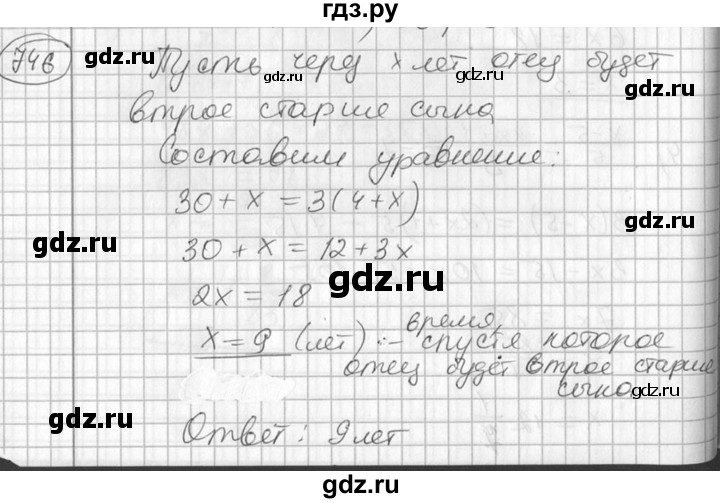 гдз.ру
746 Пусть через x лет отец будет
втрое старше сына
Составим уравнение:
30 + x = 3(4 + x)
30 + x = 12 + 3x
2x = 18
x = 9 (лет) :- время, спустя которое
отец будет втрое старше
сына
Ответ: 9 лет
gdz.ru
gdz.ru
gdz.ru
gdz.ru
gdz.ru
gdz.ru
gdz.ru
gdz.ru
gdz.ru
gdz.ru